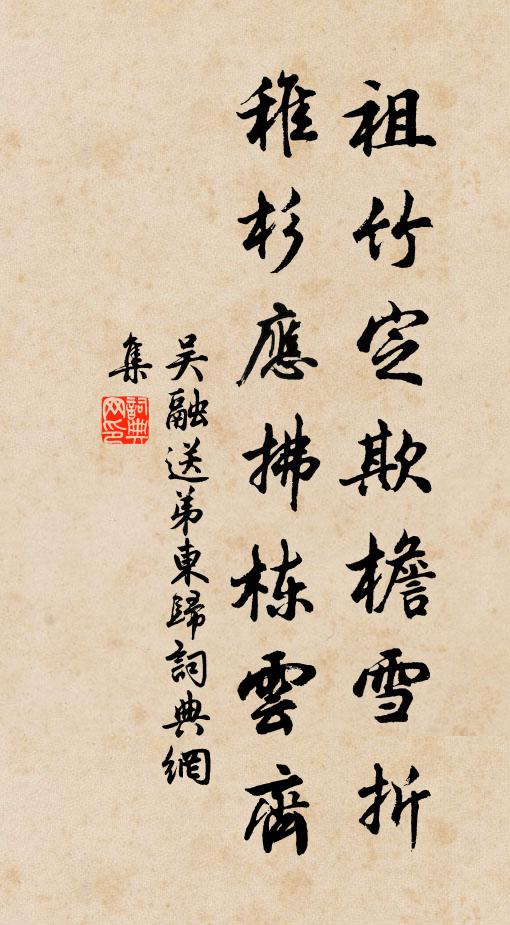 祖竹定欺檐雪折
稚杉應拂栋雲齊
吴融送弟東歸詞典網
集
詞典网印